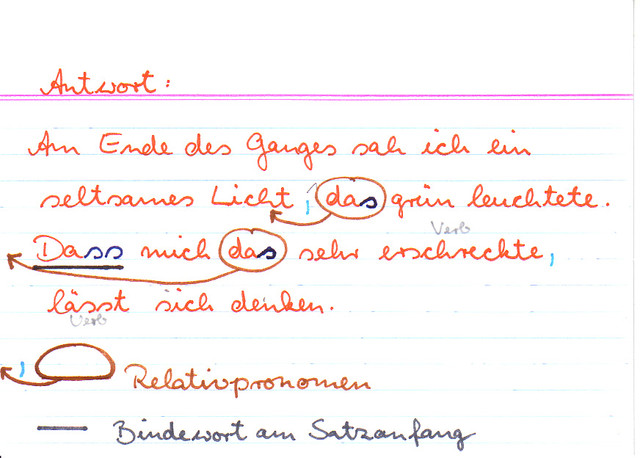 Antwort:
Am Ende des Ganges sah ich ein
seltsames Licht, das grün leuchtete.
Verb
Dass mich das sehr erschreckte,
lässt sich denken.
Verb
, Relativpronomen
Bindewort am Satzanfang